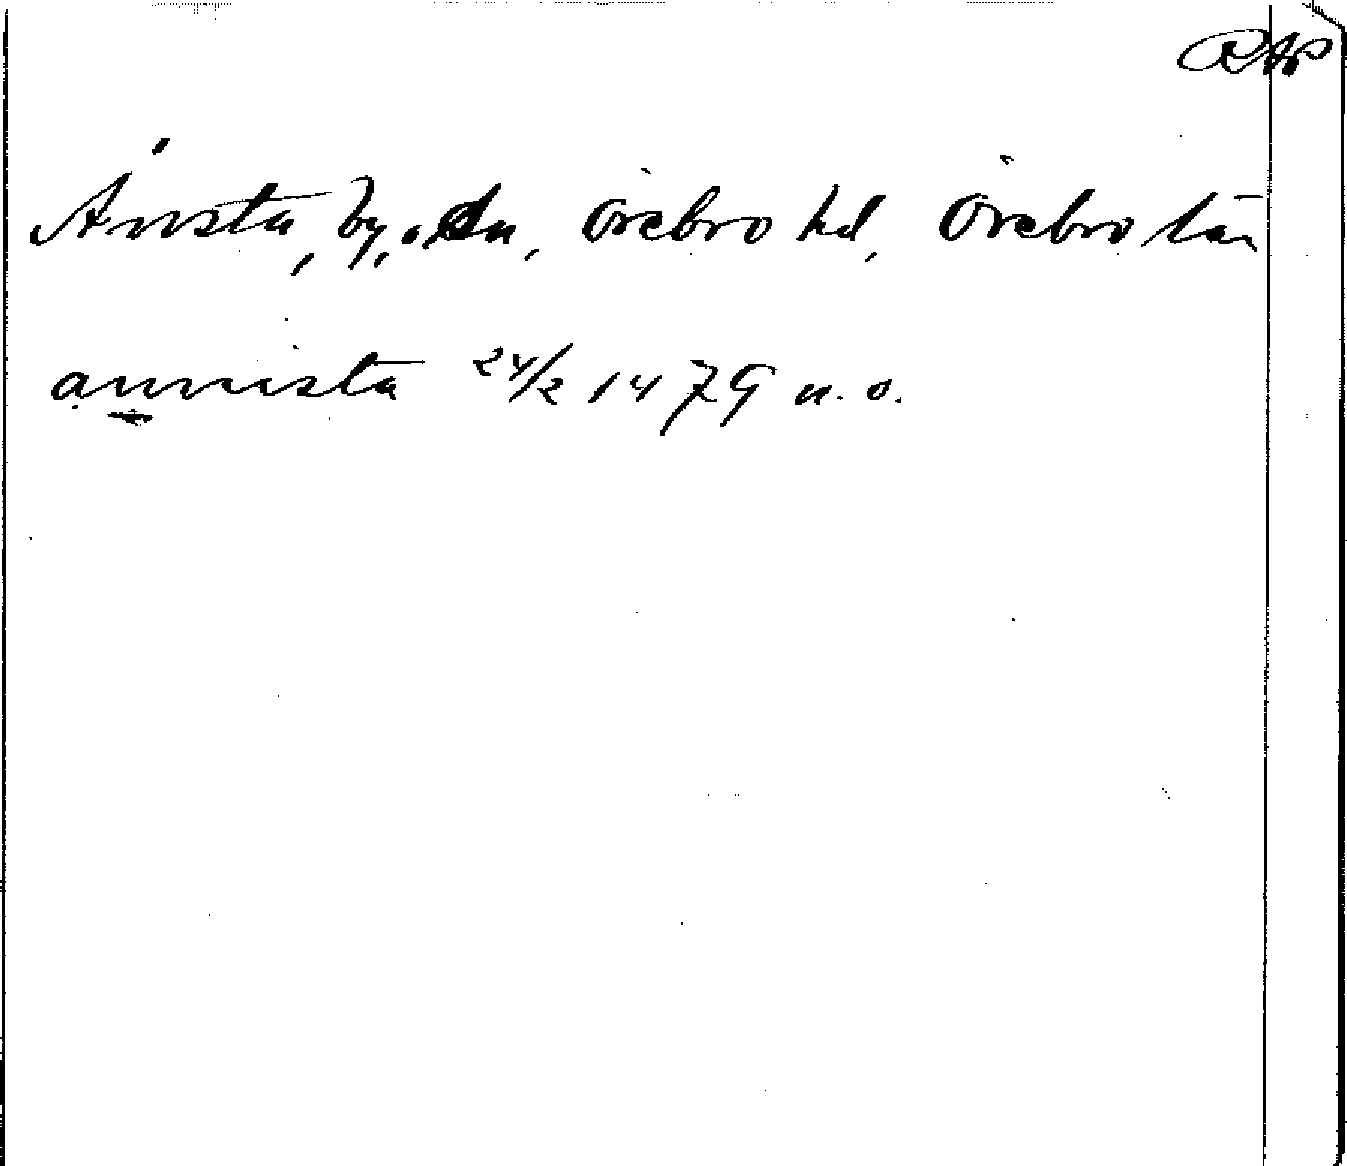 RAP
Ånsta, by, o. sn, Örebro hd, Örebro län
aunista 24/2 1479 n. o.